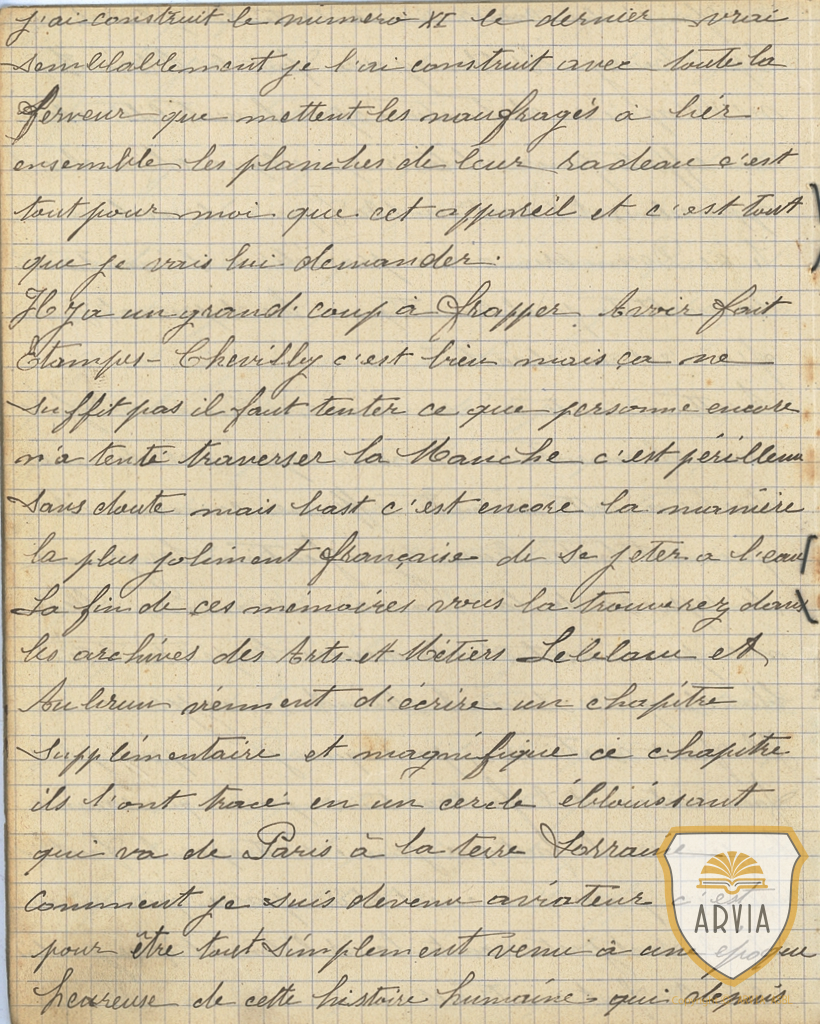 j'ai construit le numero XI le dernier vrai
semblablement je l'ai construit avec toute la
ferveur que mettent les naufragés à liér
ensemble les planches de leur radeau c'est
tout pour moi que cet appareil et c'est tout
que je vais lui demander.
Il y a un grand coup à frapper Avoir fait
Étamps-Chevilly c'est bien mais ça ne
suffit pas il faut tenter ce que personne encore
n'a tenté traverser la Manche c'est périlleux
sans doute mais bast c'est encore la manière
la plus joliment française de se jeter a l'eau
La fin de ces mémoires vous la trouverez dans
les archives des Arts et Métiers Leblanc et
Aubrun viennent d'écrire un chapitre
supplémentaire et magnifique ce chapitre
ils l'ont tracé en un cercle éblouissant
qui va de Paris à la terre Lorraine
comment je suis devenu aviateur c'est
pour être tout simplement venu à une epoque
heureuse de cette histoire humaine qui depuis
ARVIA